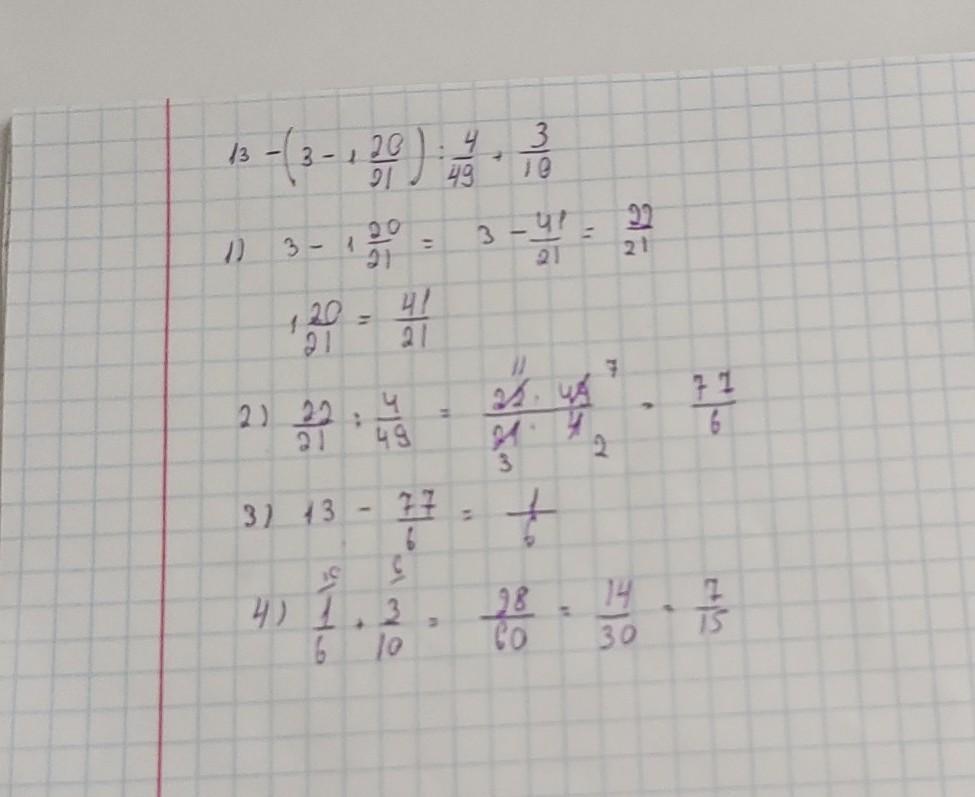 13 - (3 - 1 20/21) : 4/49 + 3/10
1) 3 - 1 20/21 = 3 - 41/21 = 22/21
1 20/21 = 41/21
2) 22/21 : 4/49 = 22 11 · 49 7 / 21 3 · 4 2 = 77/6
3) 13 - 77/6 = 1/6
4) 1/6 + 3/10 = 28/60 = 14/30 = 7/15